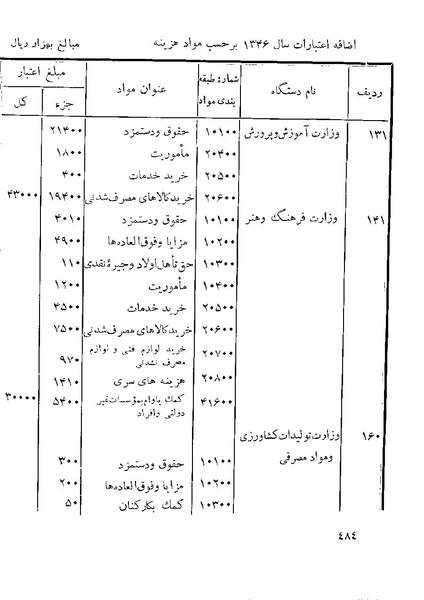 اضافه اعتبارات سال ۱۳۴۶ برحسب مواد هزینه مبالغ بهزار ریال
ردیف نام دستگاه شماره طبقه بندی مواد عنوان مواد مبلغ اعتبار جزء کل
۱۳۱ وزارت آموزش و پرورش ۱۰۱۰۰ حقوق ودستمزد ۲۱۴۰۰
۲۰۴۰۰ مأموریت ۱۸۰۰
۲۰۵۰۰ خرید خدمات ۴۰۰
۲۰۶۰۰ خرید کالاهای مصرف شدنی ۱۹۴۰۰ ۴۳۰۰۰
۱۴۱ وزارت فرهنگ وهنر ۱۰۱۰۰ حقوق ودستمزد ۴۰۱۰
۱۰۲۰۰ مزایا وفوق العاده‌ها ۴۹۰۰
۱۰۳۰۰ حق تأهل اولاد وجیرهٔ نقدی ۱۱۰
۲۰۴۰۰ مأموریت ۱۲۰۰
۲۰۵۰۰ خرید خدمات ۴۵۰۰
۲۰۶۰۰ خرید کالاهای مصرف شدنی ۷۵۰۰
۲۰۷۰۰ خرید لوازم فنی و لوازم مصرف نشدنی ۹۷۰
۲۰۸۰۰ هزینه های سری ۱۴۱۰
۴۱۶۰۰ کمک یاوام بمؤسسات غیر دولتی وافراد ۵۴۰۰ ۳۰۰۰۰
۱۶۰ وزارت تولیدات کشاورزی ومواد مصرفی
۱۰۱۰۰ حقوق ودستمزد ۳۰۰
۱۰۲۰۰ مزایا وفوق العاده‌ها ۲۰۰
۱۰۳۰۰ کمک بکارکنان ۵۰
۴۸۴